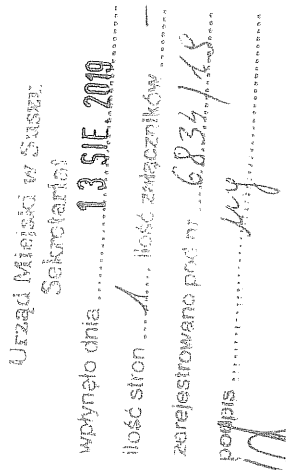 Urząd Miejski w Suszu
Sekretariat
wpłynęło dnia 13. SIE. 2019
ilość stron 1 ilość załączników —
zarejestrowano pod nr 6834/18
podpis